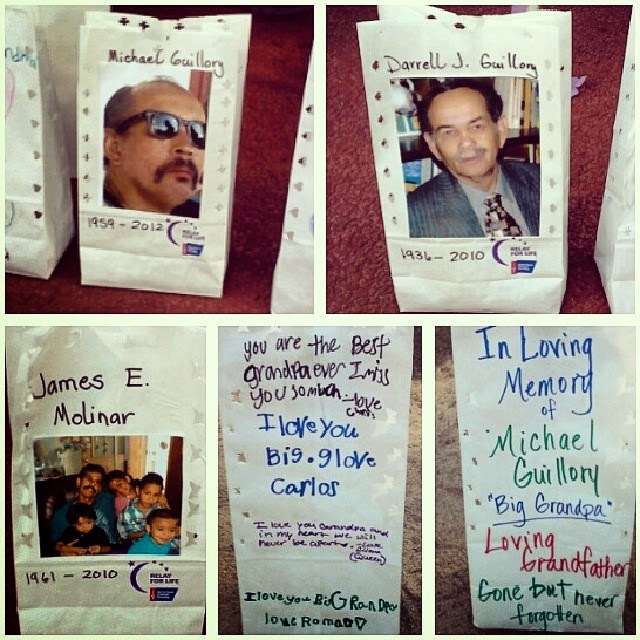 Michael Guillory
1959 - 2012
RELAY
FOR LIFE
Darrell J. Guillory
1936 - 2010
RELAY
FOR LIFE
James E.
Molinar
1961 - 2010
RELAY
FOR LIFE
you are the Best
grandpa ever I miss
you somuch
love
I love you
Big.g love
Carlos
I love you Grandpa and
in my heart we will
never be apart
(Queen)
I love you BiG RanDpa
love Roman
In Loving
Memory
of
Michael
Guillory
"Big Grandpa"
Loving
Grandfather
Gone but never
forgotten